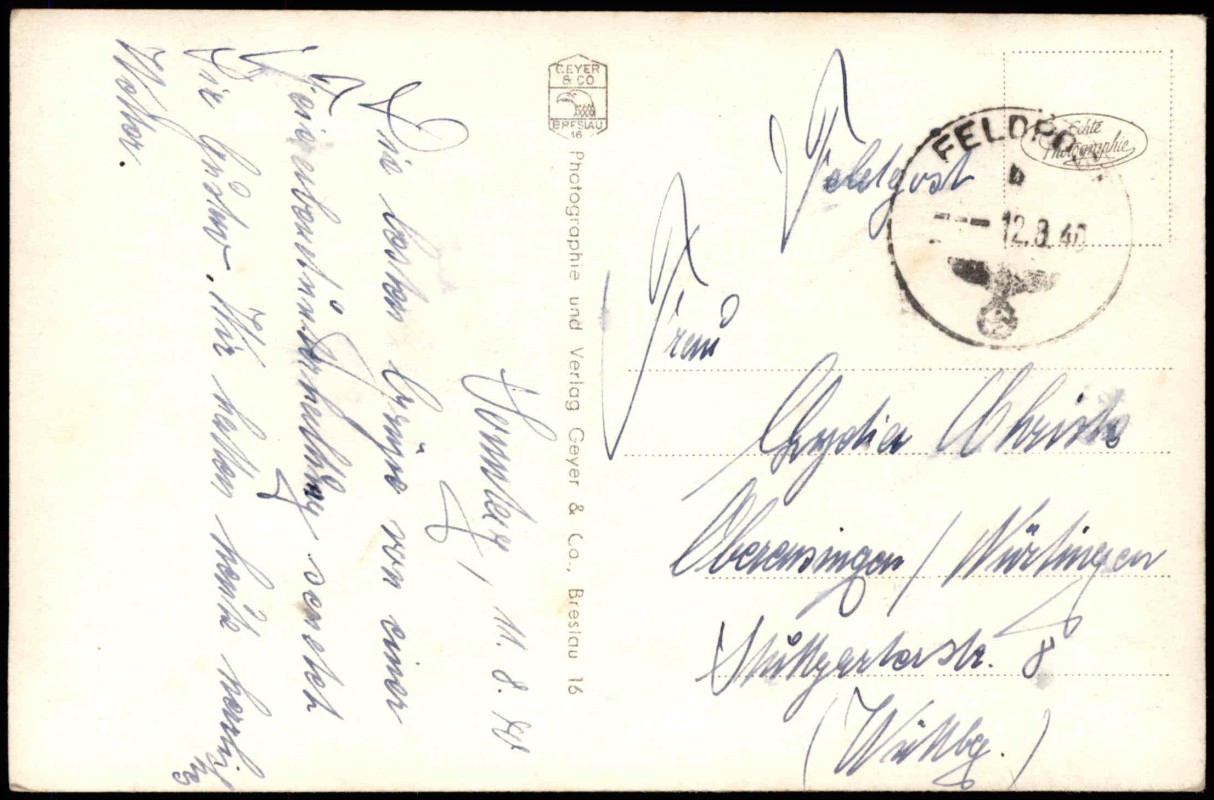 GEYER
& CO
BRESLAU
16
Photographie und Verlag Geyer & Co., Breslau 16
Echte
Photographie
FELDPO
b
12.8.40
Feldpost
Frau
Lydia Christe
Oberensingen / Nürtingen
Stuttgarterstr. 8
(Wttbg.)
Sonntag, 11. 8. 40
Die besten Grüße von einer
sendet
Dir Gustav. Wir hatten heute
Wetter.